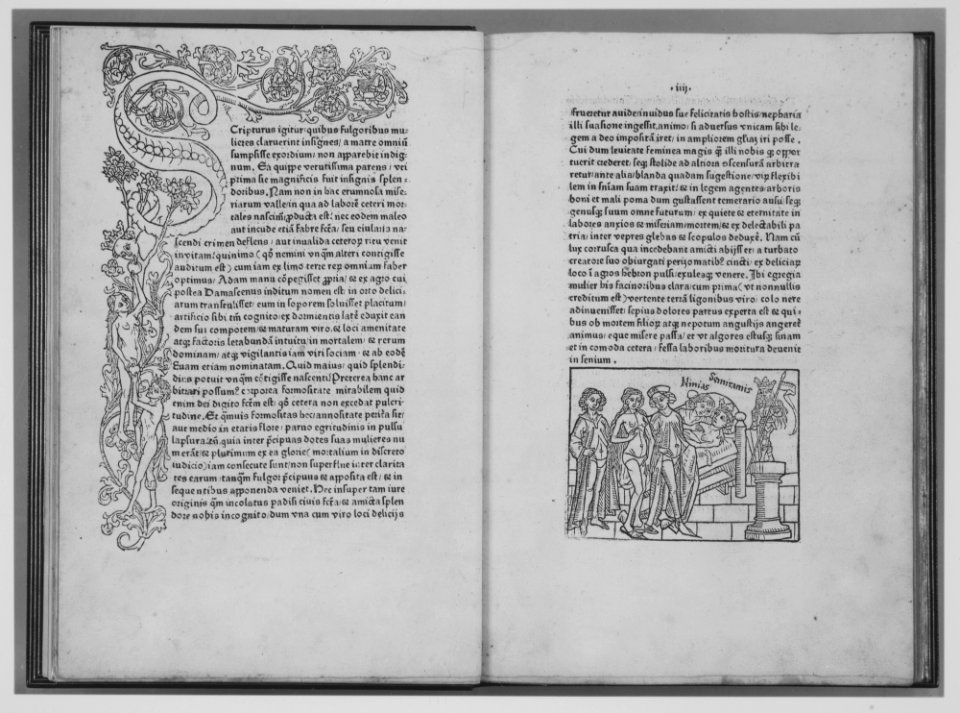 Cripturus igitur quibus fulgoribus mu-
lieres claruerint insignes/ a matre omniū
sumpsisse exordium/ non apparebit indig-
num. Ea quippe vetustissima parens/ vti
prima sic magnificis fuit insignis splen-
doribus. Nam non in hac erumnosa mise-
riarum valle/ in qua ad laborē ceteri mor-
tales nascimur ꝓducta est/ nec eodem maleo
aut incude etiā fabrefcā/ seu eiulans na-
scendi crimen deflens/ aut inualida ceteroꝝ ritu venit
in vitam/ quinimo (qð nemini vnq̄m alteri contigisse
auditum est) cum iam ex limo terre reꝝ omnium faber
optimus/ Adam manu cōpegisset ꝓpria/ & ex agro cui
postea Damascenus inditum nomen est in orto delici-
arum transtulisset/ eum in soporem soluisset placitum/
artificio sibi tm̄ cognito/ ex dormientis late᷑ eduxit ean
dem sui compotem/ & maturam viro/ & loci amenitate
atqꝫ factoris letabundā intuitu/ inmortalem/ & rerum
dominam/ atqꝫ vigilantis iam viri sociam/ & ab eodē
Euam etiam nominatam. Quid maius/ quid splendi-
dius potuit vnq̄m cōtigisse nascenti? Preterea hanc ar
bitrari possumꝰ corporea formositate mirabilem quid
enim dei digito fctm̄ est/ qð cetera non excedat pulcri-
tudine. Et q̄muis formositas hec/ annositate peritura sit/
aut medio in etatis flore/ paruo egritudinis in pulsu
lapsura/ tn̄ quia inter p̄cipuas dotes suas mulieres nu
merāt/ & plurimum ex ea glorie/ mortalium indiscreto
iudicio/ iam consecute sunt/ non superflue inter clarita
tes earum/ tanq̄m fulgor p̄cipuus & apposita est/ & in
sequentibus apponenda veniet. Hec insuper tam iure
originis q̄m incolatus padisi ciuis fcā/ & amicta splen
dore nobis incognito/ dum vna cum viro loci delicijs
·iiij·
frueretur auide/ inuidus sue felicitatis hostis/ nepharia
illi suasione ingessit animo/ si aduersus vnicam sibi le-
gem a deo impositā iret/ in ampliorem gl'iaꝫ iri posse.
Cui dum leuitate feminea magis q̄ illi nobis qꝫ oppor
tuerit crederet/ seqꝫ stolide ad altiora oscensurā arbitra
retur/ ante alia/ blanda quadam sugestione/ viꝝ flexibi
lem in sn̄iam suam traxit/ & in legem agentes/ arboris
boni et mali poma dum gustassent temerario ausu/ seqꝫ
genusqꝫ suum omne futurum/ ex quiete & eternitate in
labores anxios & miseriam/ mortem/ & ex delectabili pa
tria/ inter vepres glebas & scopulos deduxē. Nam cū
lux corrusca qua incedebant amicti abijsset/ a turbato
creatore suo obiurgati perizomatibꝰ cincti/ ex deliciaꝝ
loco ī agros hebron pulsi/ exulesqꝫ venere. Ibi egregia
mulier his facinoribus clara/ cum prima (vt nonnullis
creditum est) vertente terrā ligonibus viro/ colo nere
adinuenisset/ sepius dolores partus experta est & qui-
bus ob mortem filioꝝ atqꝫ nepotum angustijs angeret᷑
animus/ eque misere passa/ et vt algores estusqꝫ sinam
et incomoda cetera/ fessa laboribus moritura deuenit
in senium.
Ninias Semiramis